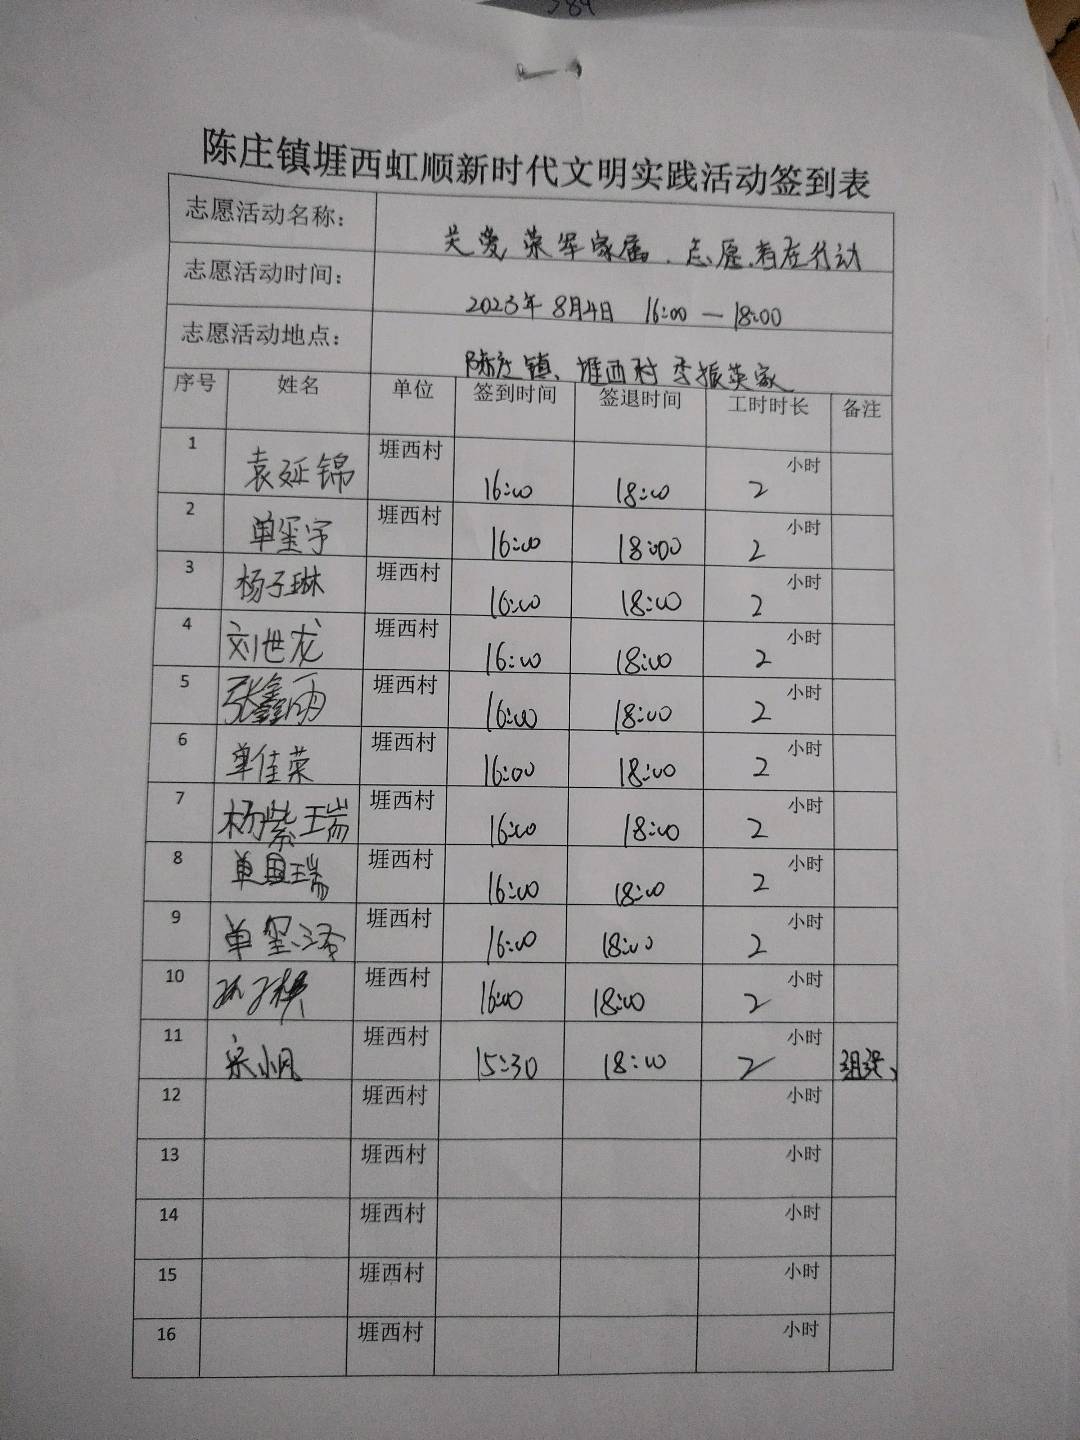 384
陈庄镇堐西虹顺新时代文明实践活动签到表
志愿活动名称： 关爱荣军家属．志愿者在行动
志愿活动时间： 2023年8月4日 16:00 — 18:00
志愿活动地点： 陈庄镇、堐西村李振英家
序号 姓名 单位 签到时间 签退时间 工时时长 备注
1 袁延锦 堐西村 16:00 18:00 2 小时
2 单玺宇 堐西村 16:00 18:00 2 小时
3 杨子琳 堐西村 16:00 18:00 2 小时
4 刘世龙 堐西村 16:00 18:00 2 小时
5 张鑫雨 堐西村 16:00 18:00 2 小时
6 单佳荣 堐西村 16:00 18:00 2 小时
7 杨紫瑞 堐西村 16:00 18:00 2 小时
8 单 瑞 堐西村 16:00 18:00 2 小时
9 单玺泽 堐西村 16:00 18:00 2 小时
10 堐西村 16:00 18:00 2 小时
11 宋小凤 堐西村 15:30 18:00 2 小时
12 堐西村 小时
13 堐西村 小时
14 堐西村 小时
15 堐西村 小时
16 堐西村 小时